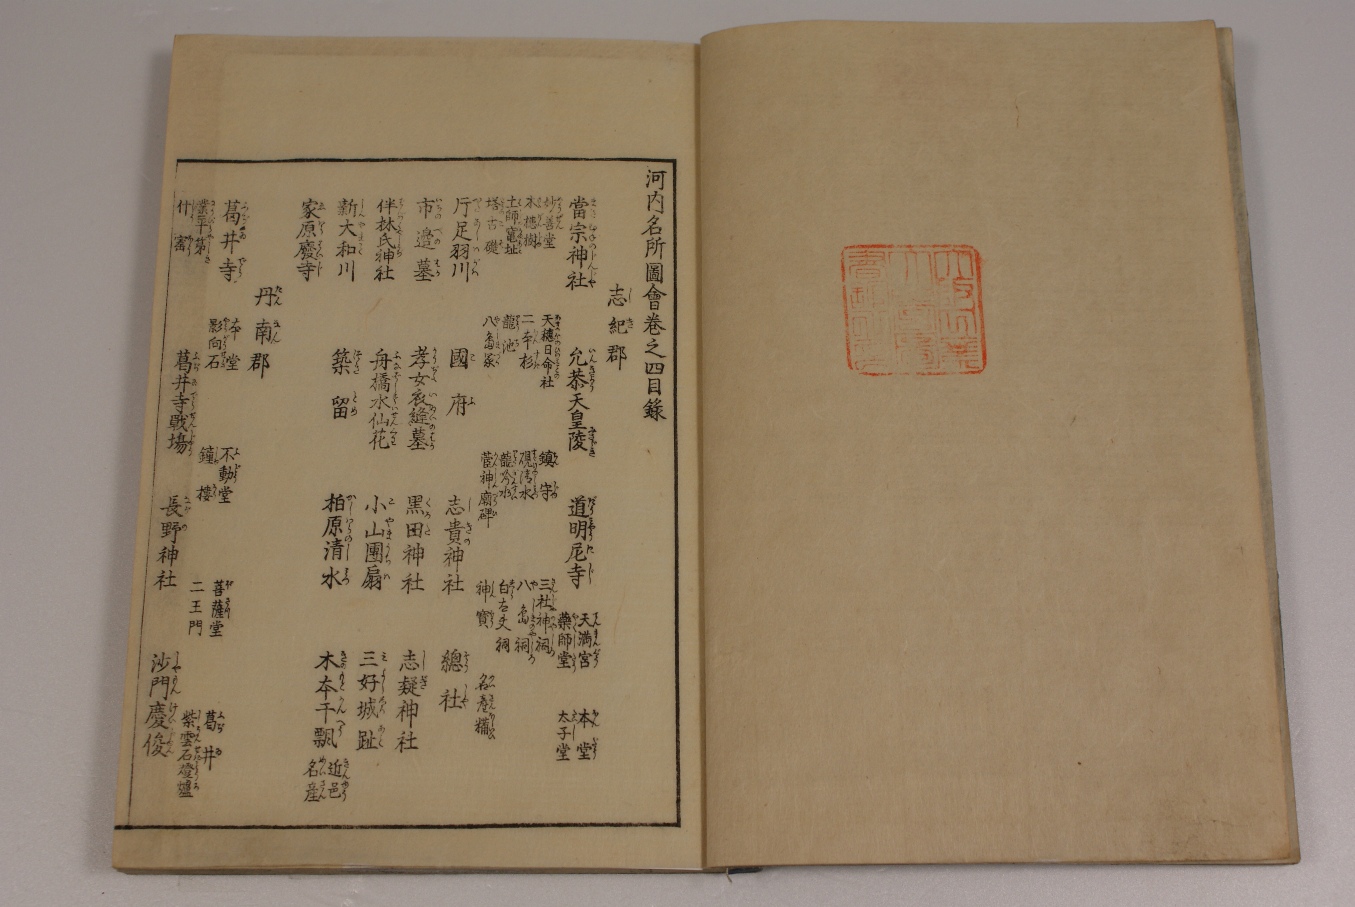 河内名所圖會巻之四目錄
志紀郡
當宗神社 允恭天皇陵 道明尼寺 天満宮 本堂
藥師堂 太子堂
妙善堂 天穂日命社 鎮守 三社神祠
木槵樹 二本杉 硯清水 八島祠
土師竈址 龍池 龍吟水 白太夫祠
塔古礎 八島塚 菅神廟碑 神寶 名産糒
斤足羽川 國府 志貴神社 總社
市邉墓 孝女衣縫墓 黒田神社 志疑神社
伴林氏神社 舟橋水仙花 小山團扇 三好城趾
新大和川 築留 柏原清水 木本干瓢 近邑
名産
家原廢寺
丹南郡
葛井寺 本堂 不動堂 菩薩堂 葛井
業平第 影向石 鐘樓 二王門 紫雲石燈爐
什寳 葛井寺戰場 長野神社 沙門慶俊